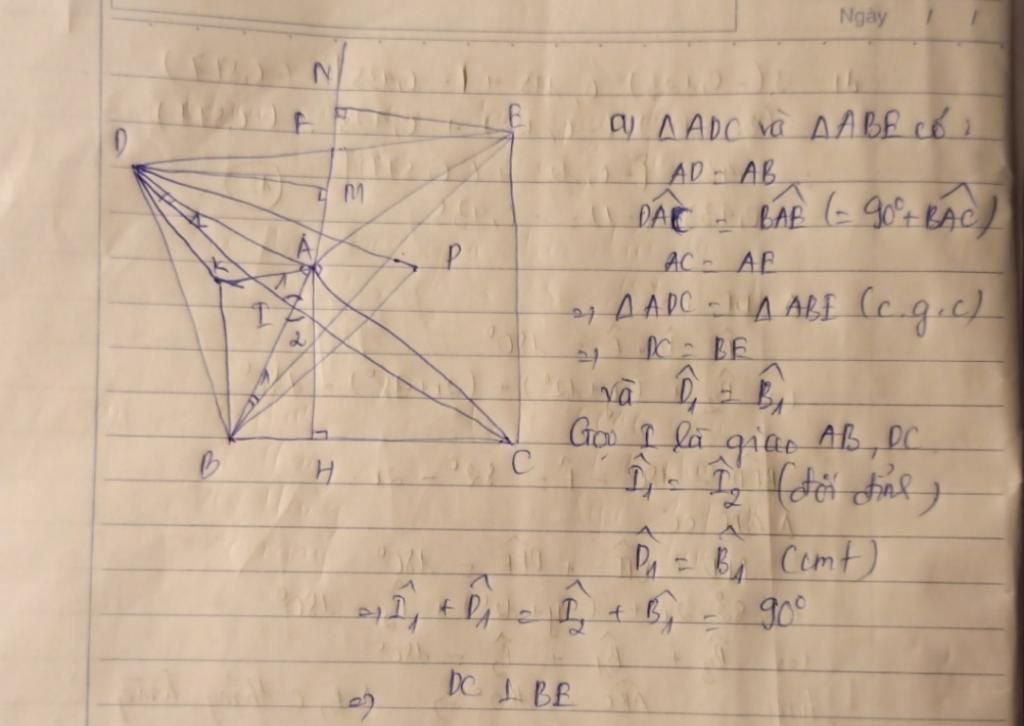 Ngày / /
N
F
E
D
M
1
A
P
K
1
I
2
1
B
H
C
a) ΔADC và ΔABE có:
AD = AB
DAC^ = BAE^ (= 90° + BAC^)
AC = AE
=> ΔADC = ΔABE (c.g.c)
=> DC = BE
và D̂₁ = B̂₁
Gọi I là giao AB, DC
Î₁ = Î₂ (đối đỉnh)
D̂₁ = B̂₁ (cmt)
=> Î₁ + D̂₁ = Î₂ + B̂₁ = 90°
=> DC ⊥ BE